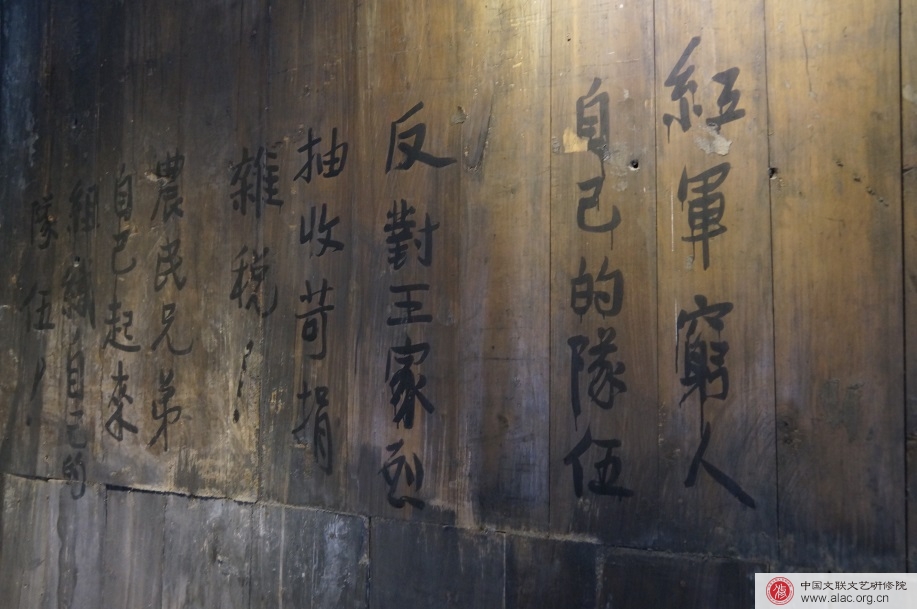 紅軍窮人
自己的隊伍
反對王家烈
抽收苛捐
雜税！
農民兄弟
自己起來
組織自己的
隊伍！
中国文联文艺研修院
www.alac.org.cn